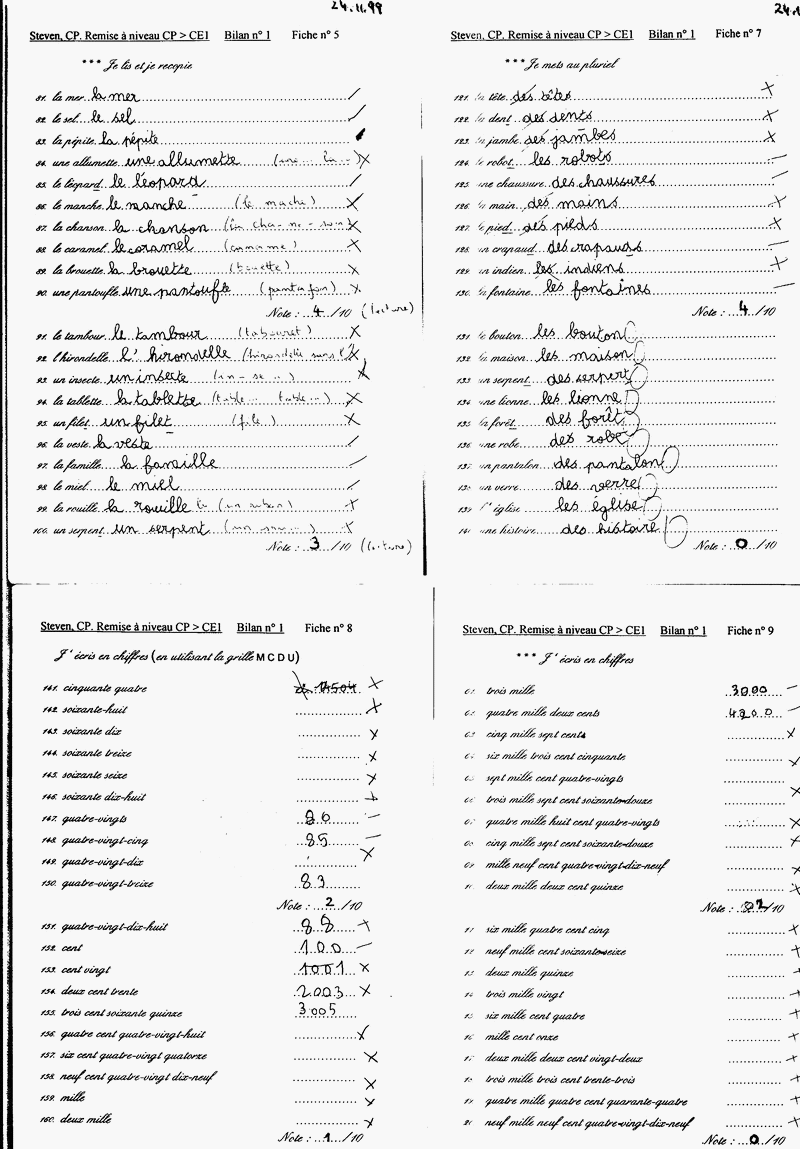 24.11.99
Steven, CP. Remise à niveau CP > CE1 Bilan n° 1 Fiche n° 5
*** Je lis et je recopie
81. la mer la mer
82. le sel le sel
83. la pépite la pépite
84. une allumette une allumette
85. le léopard le léopard
86. le manche le manche
87. la chanson la chanson
88. le caramel le caramel
89. la brouette la brouette
90. une pantoufle une pantoufle
Note : 4 /10 (lecture)
91. le tambour le tambour (tabouret)
92. l'hirondelle l'hirondelle
93. un insecte un insecte
94. la tablette la tablette
95. un filet un filet (filé)
96. la veste la veste
97. la famille la famille
98. le miel le miel
99. la rouille la rouille
100. un serpent un serpent
Note : 3 /10 (lecture)
24.1
Steven, CP. Remise à niveau CP > CE1 Bilan n° 1 Fiche n° 7
*** Je mets au pluriel
121. la tête des têtes
122. la dent des dents
123. la jambe des jambes
124. le robot les robots
125. une chaussure des chaussures
126. la main des mains
127. le pied des pieds
128. un crapaud des crapauds
129. un indien les indiens
130. la fontaine les fontaines
Note : 4 /10
131. le bouton les bouton
132. la maison les maison
133. un serpent des serpent
134. une lionne les lionne
135. la forêt des forêt
136. une robe des robe
137. un pantalon des pantalon
138. un verre des verre
139. l'église les église
140. une histoire des histoire
Note : 0 /10
Steven, CP. Remise à niveau CP > CE1 Bilan n° 1 Fiche n° 8
J'écris en chiffres (en utilisant la grille MCDU)
141. cinquante quatre
142. soixante-huit
143. soixante dix
144. soixante treize
145. soixante seize
146. soixante dix-huit
147. quatre-vingts 80
148. quatre-vingt-cinq 85
149. quatre-vingt-dix
150. quatre-vingt-treize 83
Note : 2 /10
151. quatre-vingt-dix-huit 88
152. cent 100
153. cent vingt 1001
154. deux cent trente 2003
155. trois cent soixante quinze 3005
156. quatre cent quatre-vingt-huit
157. six cent quatre-vingt quatorze
158. neuf cent quatre-vingt dix-neuf
159. mille
160. deux mille
Note : 1 /10
Steven, CP. Remise à niveau CP > CE1 Bilan n° 1 Fiche n° 9
*** J'écris en chiffres
trois mille 3000
quatre mille deux cents 4200
cinq mille sept cents
six mille trois cent cinquante
sept mille cent quatre-vingts
trois mille sept cent soixante-douze
quatre mille huit cent quatre-vingts
cinq mille sept cent soixante-douze
mille neuf cent quatre-vingt-dix-neuf
deux mille deux cent quinze
Note : 2 /10
six mille quatre cent cinq
neuf mille cent soixante-seize
deux mille quinze
trois mille vingt
six mille cent quatre
mille cent onze
deux mille deux cent vingt-deux
trois mille trois cent trente-trois
quatre mille quatre cent quarante-quatre
neuf mille neuf cent quatre-vingt-dix-neuf
Note : 0 /10